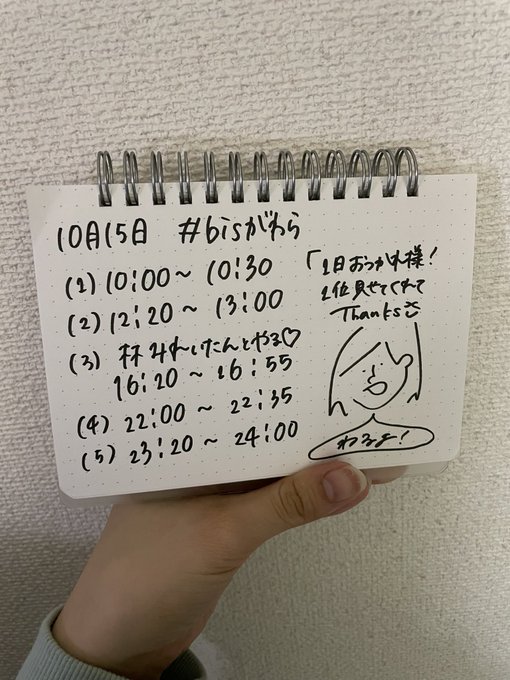 10月15日 #bisがわら
(1) 10:00～10:30
(2) 12:20～13:00
(3) 林みれいたんとやる♡
16:20～16:55
(4) 22:00～22:35
(5) 23:20～24:00
「1日おつかれ様!
1位見せてくれて
Thanks
わるよ!